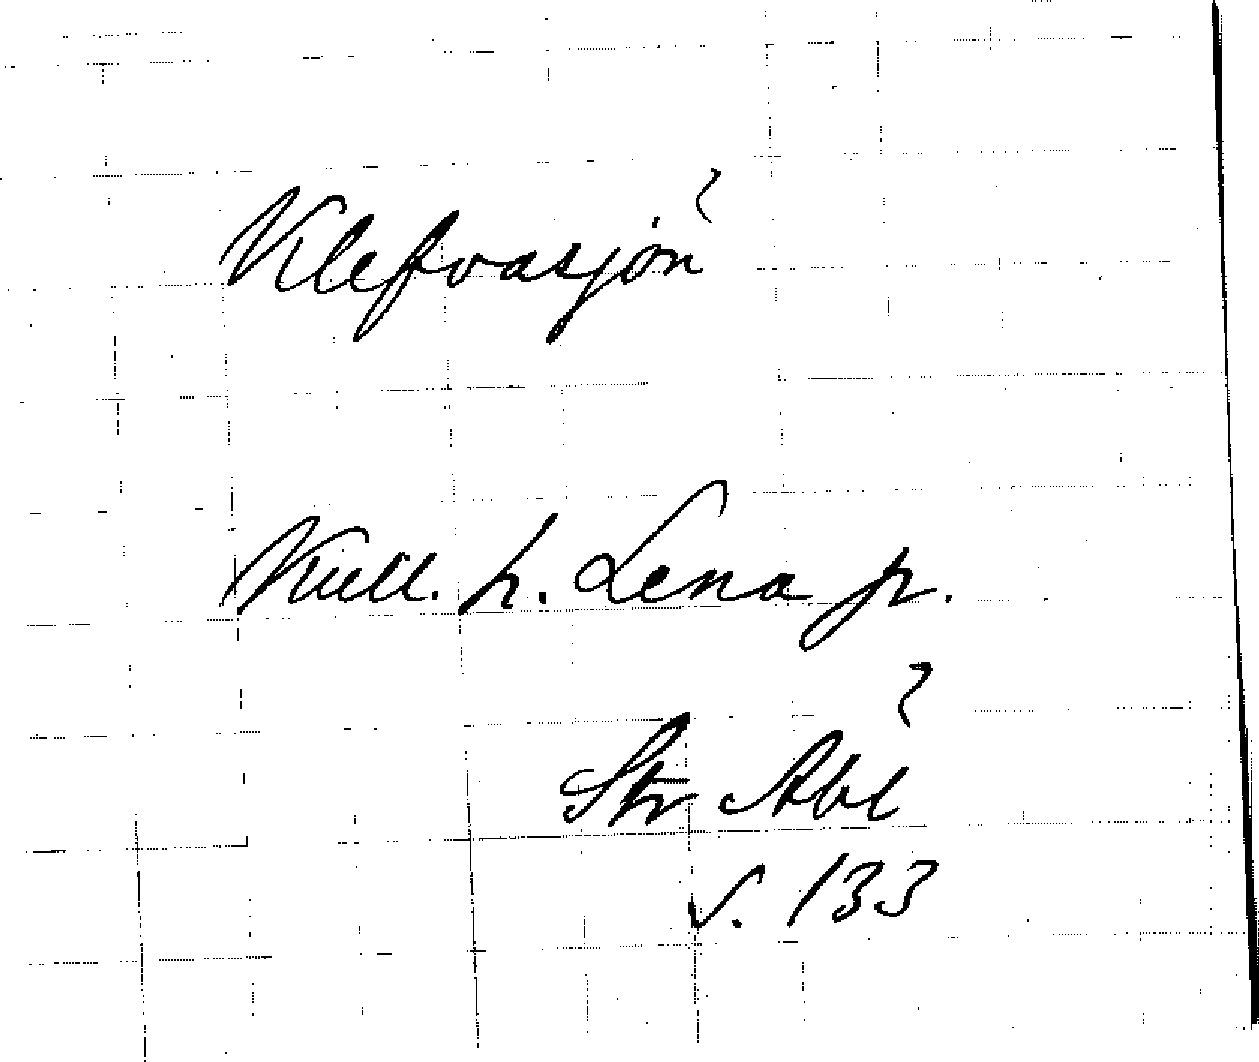 Klefvasjön
Kull. h. Lena p.
Str Abl
s. 133